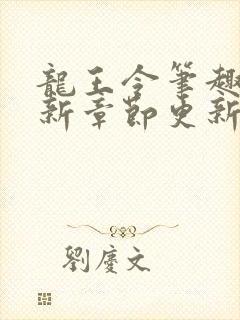 龍王令筆趣
新章節更新
劉慶文